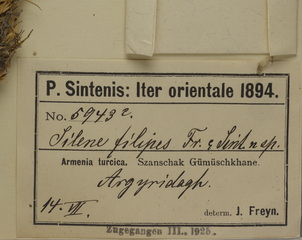 P. Sintenis: Iter orientale 1894.
No. 5943c.
Silene filipes Fr. & Sint. n. sp.
Armenia turcica. Szanschak Gümüschkhane.
Argyridagh.
14. VII. determ. J. Freyn.
Zugegangen III. 1925.